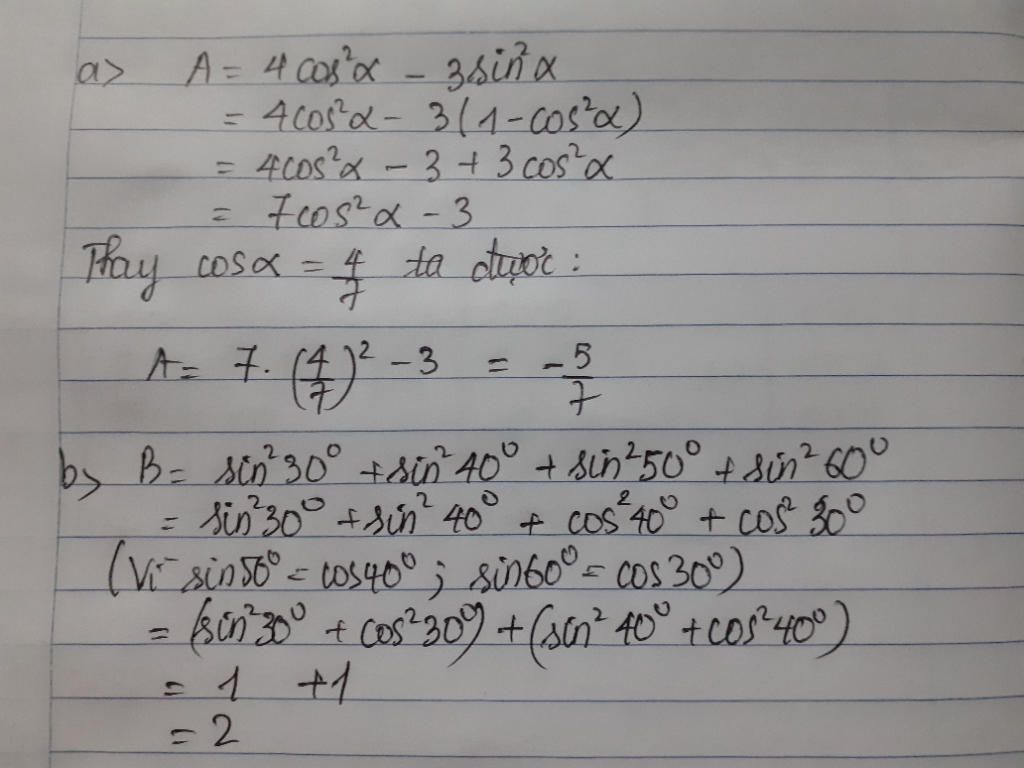 a> A = 4cos²α - 3sin²α
= 4cos²α - 3(1-cos²α)
= 4cos²α - 3 + 3cos²α
= 7cos²α - 3
Thay cosα = 4/7 ta được :
A = 7. (4/7)² - 3 = -5/7
b> B = sin²30° + sin²40° + sin²50° + sin²60°
= sin²30° + sin²40° + cos²40° + cos²30°
(Vì sin50° = cos40° ; sin60° = cos30°)
= (sin²30° + cos²30°) + (sin²40° + cos²40°)
= 1 + 1
= 2